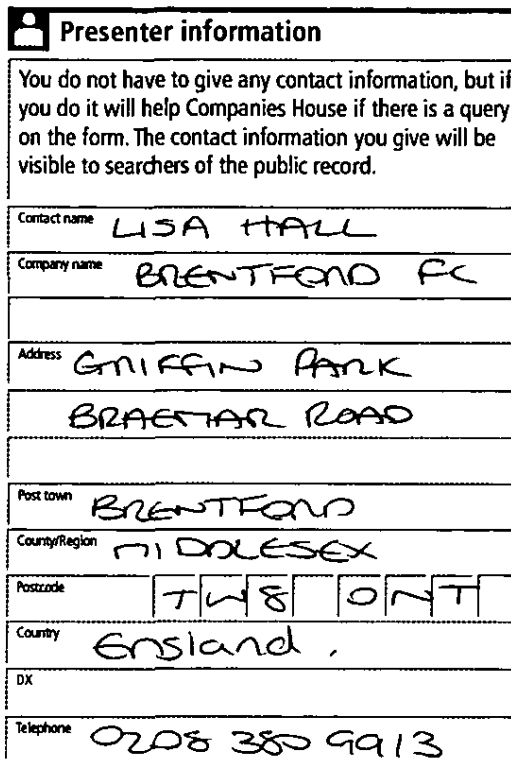 Presenter information
You do not have to give any contact information, but if
you do it will help Companies House if there is a query
on the form. The contact information you give will be
visible to searchers of the public record.
Contact name LISA HALL
Company name BRENTFORD FC
Address GRIFFIN PARK
BRAEMAR ROAD
Post town BRENTFORD
County/Region MIDDLESEX
Postcode TW8 0NT
Country England.
DX
Telephone 0208 380 9913